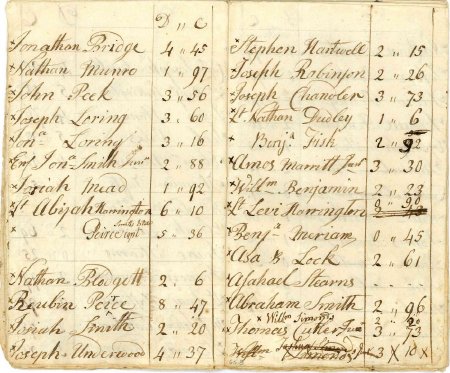 D " C
Jonathan Bridge 4 " 45
× Nathan Munro 1 " 97
× John Peck 3 " 56
× Joseph Loring 3 " 60
× Jonª Loring 3 " 16
Jonª Smith Junr 2 " 88
× Josiah Mead 1 " 92
× Lt Abijah Harrington 6 " 10
× Peirce 5 " 36
× Nathan Blodgett 2 " 6
× Reubin Peirce 8 " 47
× Josiah Smith 2 " 20
Joseph Underwood 4 " 37
Stephen Hartwell 2 " 15
Joseph Robinson 2 " 26
× Joseph Chandler 3 " 73
× Lt Nathan Dudley 1 " 6
× Benjª Fisk 2 " 92
× Amos Marritt Junr 3 " 30
× Willm Benjamin 2 " 23
× Lt Levi Harrington 8 " 90
× Benjª Meriam 0 " 45
× Asa B Lock 2 " 61
× Asahael Stearns
× Abraham Smith 2 " 96
× Willm Simonds 2 " 20
× Thomas Cutler Junr 3 " 73
Simonds 3 × 10 ×